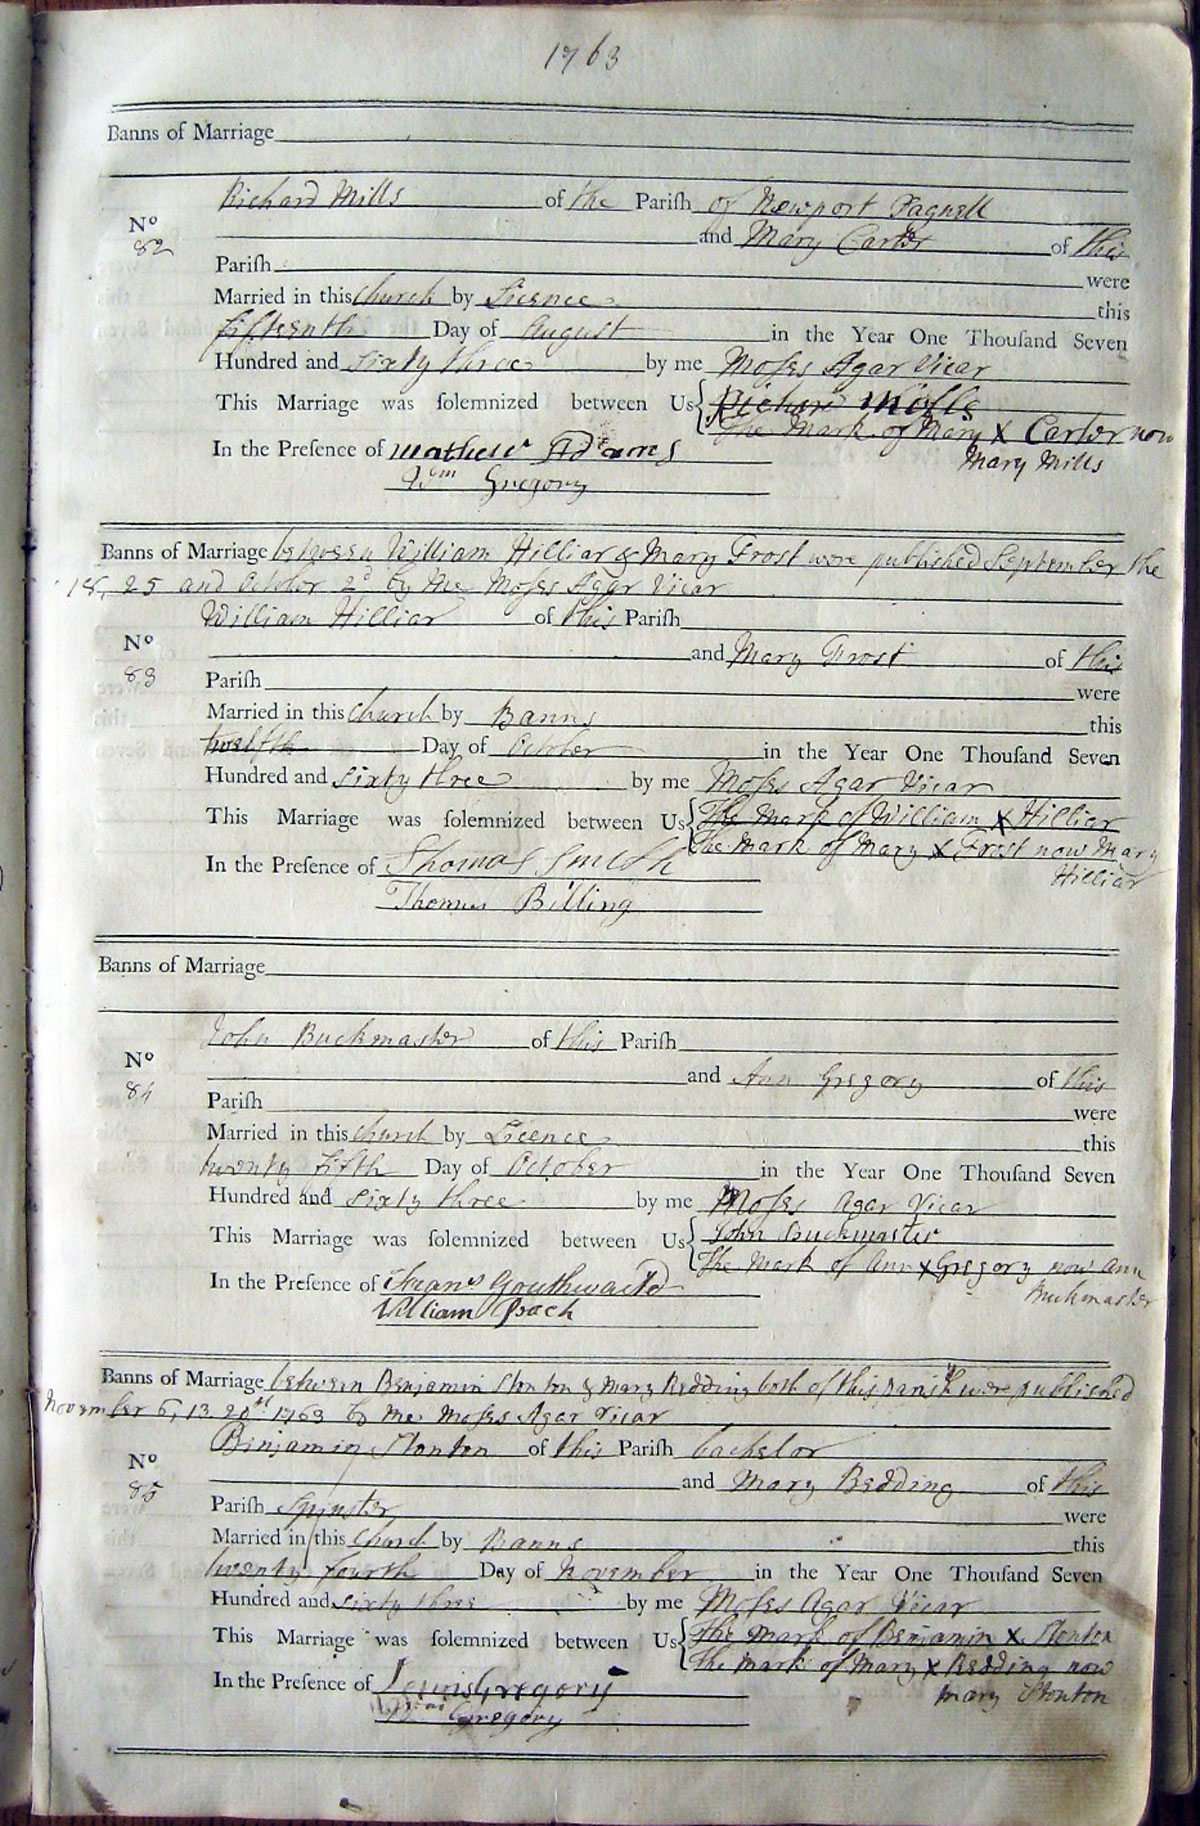 1763
Banns of Marriage
Richard Mills of the Pariſh of Newport Pagnell
No
82
and Mary Carter of this
Pariſh were
Married in this Church by Licence this
fifteenth Day of August in the Year One Thouſand Seven
Hundred and sixty three by me Moſes Agar Vicar
This Marriage was ſolemnized between Us Richard Mills
The Mark of Mary X Carter now
Mary Mills
In the Presence of Mathew Adams
Wm Gregory
Banns of Marriage between William Hilliar & Mary Frost were published September the
18, 25 and October 2d by Me Moſes Agar Vicar
William Hilliar of this Pariſh
No
83
and Mary Frost of this
Pariſh were
Married in this Church by Banns this
twelfth Day of October in the Year One Thouſand Seven
Hundred and sixty three by me Moſes Agar Vicar
This Marriage was ſolemnized between Us The Mark of William X Hilliar
The Mark of Mary X Frost now Mary
Hilliar
In the Presence of Thomas Smith
Thomas Billing
Banns of Marriage
John Buckmaster of this Pariſh
No
84
and Ann Gregory of this
Pariſh were
Married in this Church by Licence this
twenty fifth Day of October in the Year One Thouſand Seven
Hundred and sixty three by me Moſes Agar Vicar
This Marriage was ſolemnized between Us John Buckmaster
The Mark of Ann X Gregory now Ann
Buckmaster
In the Presence of
William
Banns of Marriage between Benjamin Stonton & Mary Redding both of this parish were published
November 6, 13, 20th 1763 by Me Moſes Agar Vicar
Benjamin Stonton of this Pariſh bachelor
No
85
and Mary Redding of this
Pariſh Spinster were
Married in this Church by Banns this
twenty fourth Day of November in the Year One Thouſand Seven
Hundred and sixty three by me Moſes Agar Vicar
This Marriage was ſolemnized between Us The Mark of Benjamin X Stonton
The Mark of Mary X Redding now
Mary Stonton
In the Presence of Lewis Gregory
Gregory